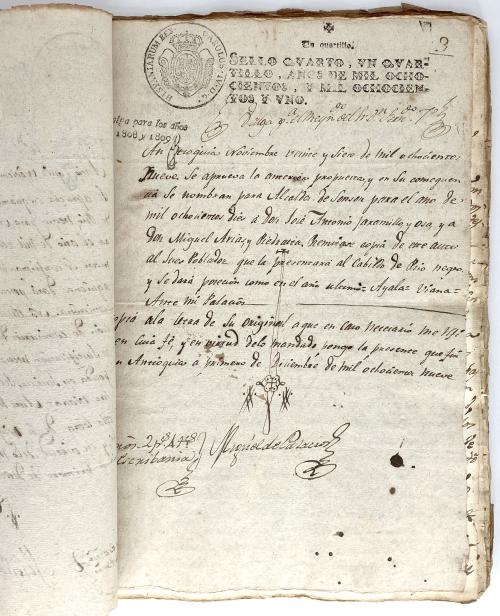 3
Un quartillo.
HISPANIARUM REX CAROLUS IV D G
SELLO QVARTO, VN QVAR-
TILLO, AÑOS DE MIL OCHO-
CIENTOS, Y MIL OCHOCIEN-
TOS Y VNO.
para los años
1808 y 1809
Noviembre veinte y siete de mil ochocientos
nueve. Se aprueva la anterior propuesta, y en su consequen
cia se nombran para Alcaldes de Sonson para el año de
mil ochocientos dies a Don José Antonio Jaramillo y a
Don Miguel Arias, copia de este auto
al Jues Poblador que la presentará al Cabildo de Rio negro
y se dará posecion como en el año ultimo= Ayala= Viana=
Ante mi Palacio=
copia ala letra de su original a que en caso necesario me
fé, y en virtud delo mandado pongo la presente que
en Antioquia a primero de Diciembre de mil ochocientos nueve
Escribania
de Palacio